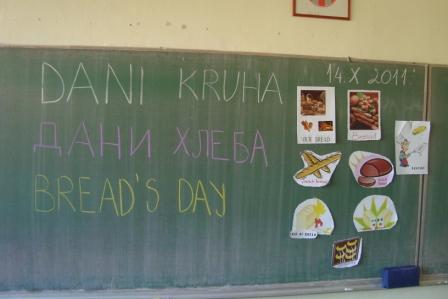 DANI KRUHA
14. X 2011.
ДАНИ ХЛЕБА
BREAD'S DAY
OUR BREAD